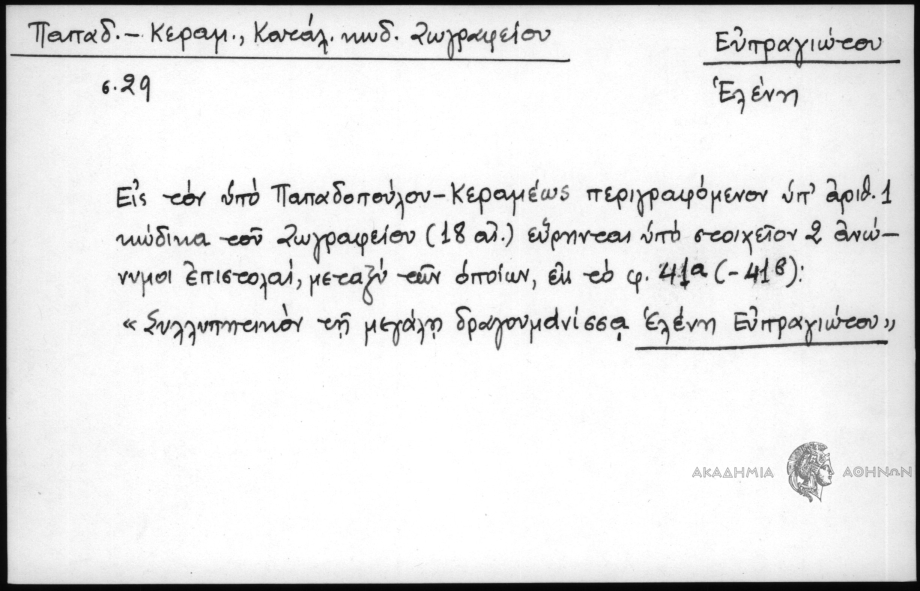 Παπαδ. – Κεραμ., Κατάλ. κωδ. Ζωγραφείου
Εὐπραγιώτου
σ. 29
Ἑλένη
Εἰς τὸν ὑπὸ Παπαδοπούλου-Κεραμέως περιγραφόμενον ὑπ' ἀριθ. 1
κώδικα τοῦ Ζωγραφείου (18 αἰ.) εὕρηνται ὑπὸ στοιχεῖον 2 ἀνώ-
νυμοι ἐπιστολαί, μεταξὺ τῶν ὁποίων, ἐκ τὸ φ. 41α (-41β):
«Συλλυπητικὸν τῇ μεγάλῃ δραγουμανίσσᾳ Ἑλένῃ Εὐπραγιώτου»
ΑΚΑΔΗΜΙΑ ΑΘΗΝΩΝ